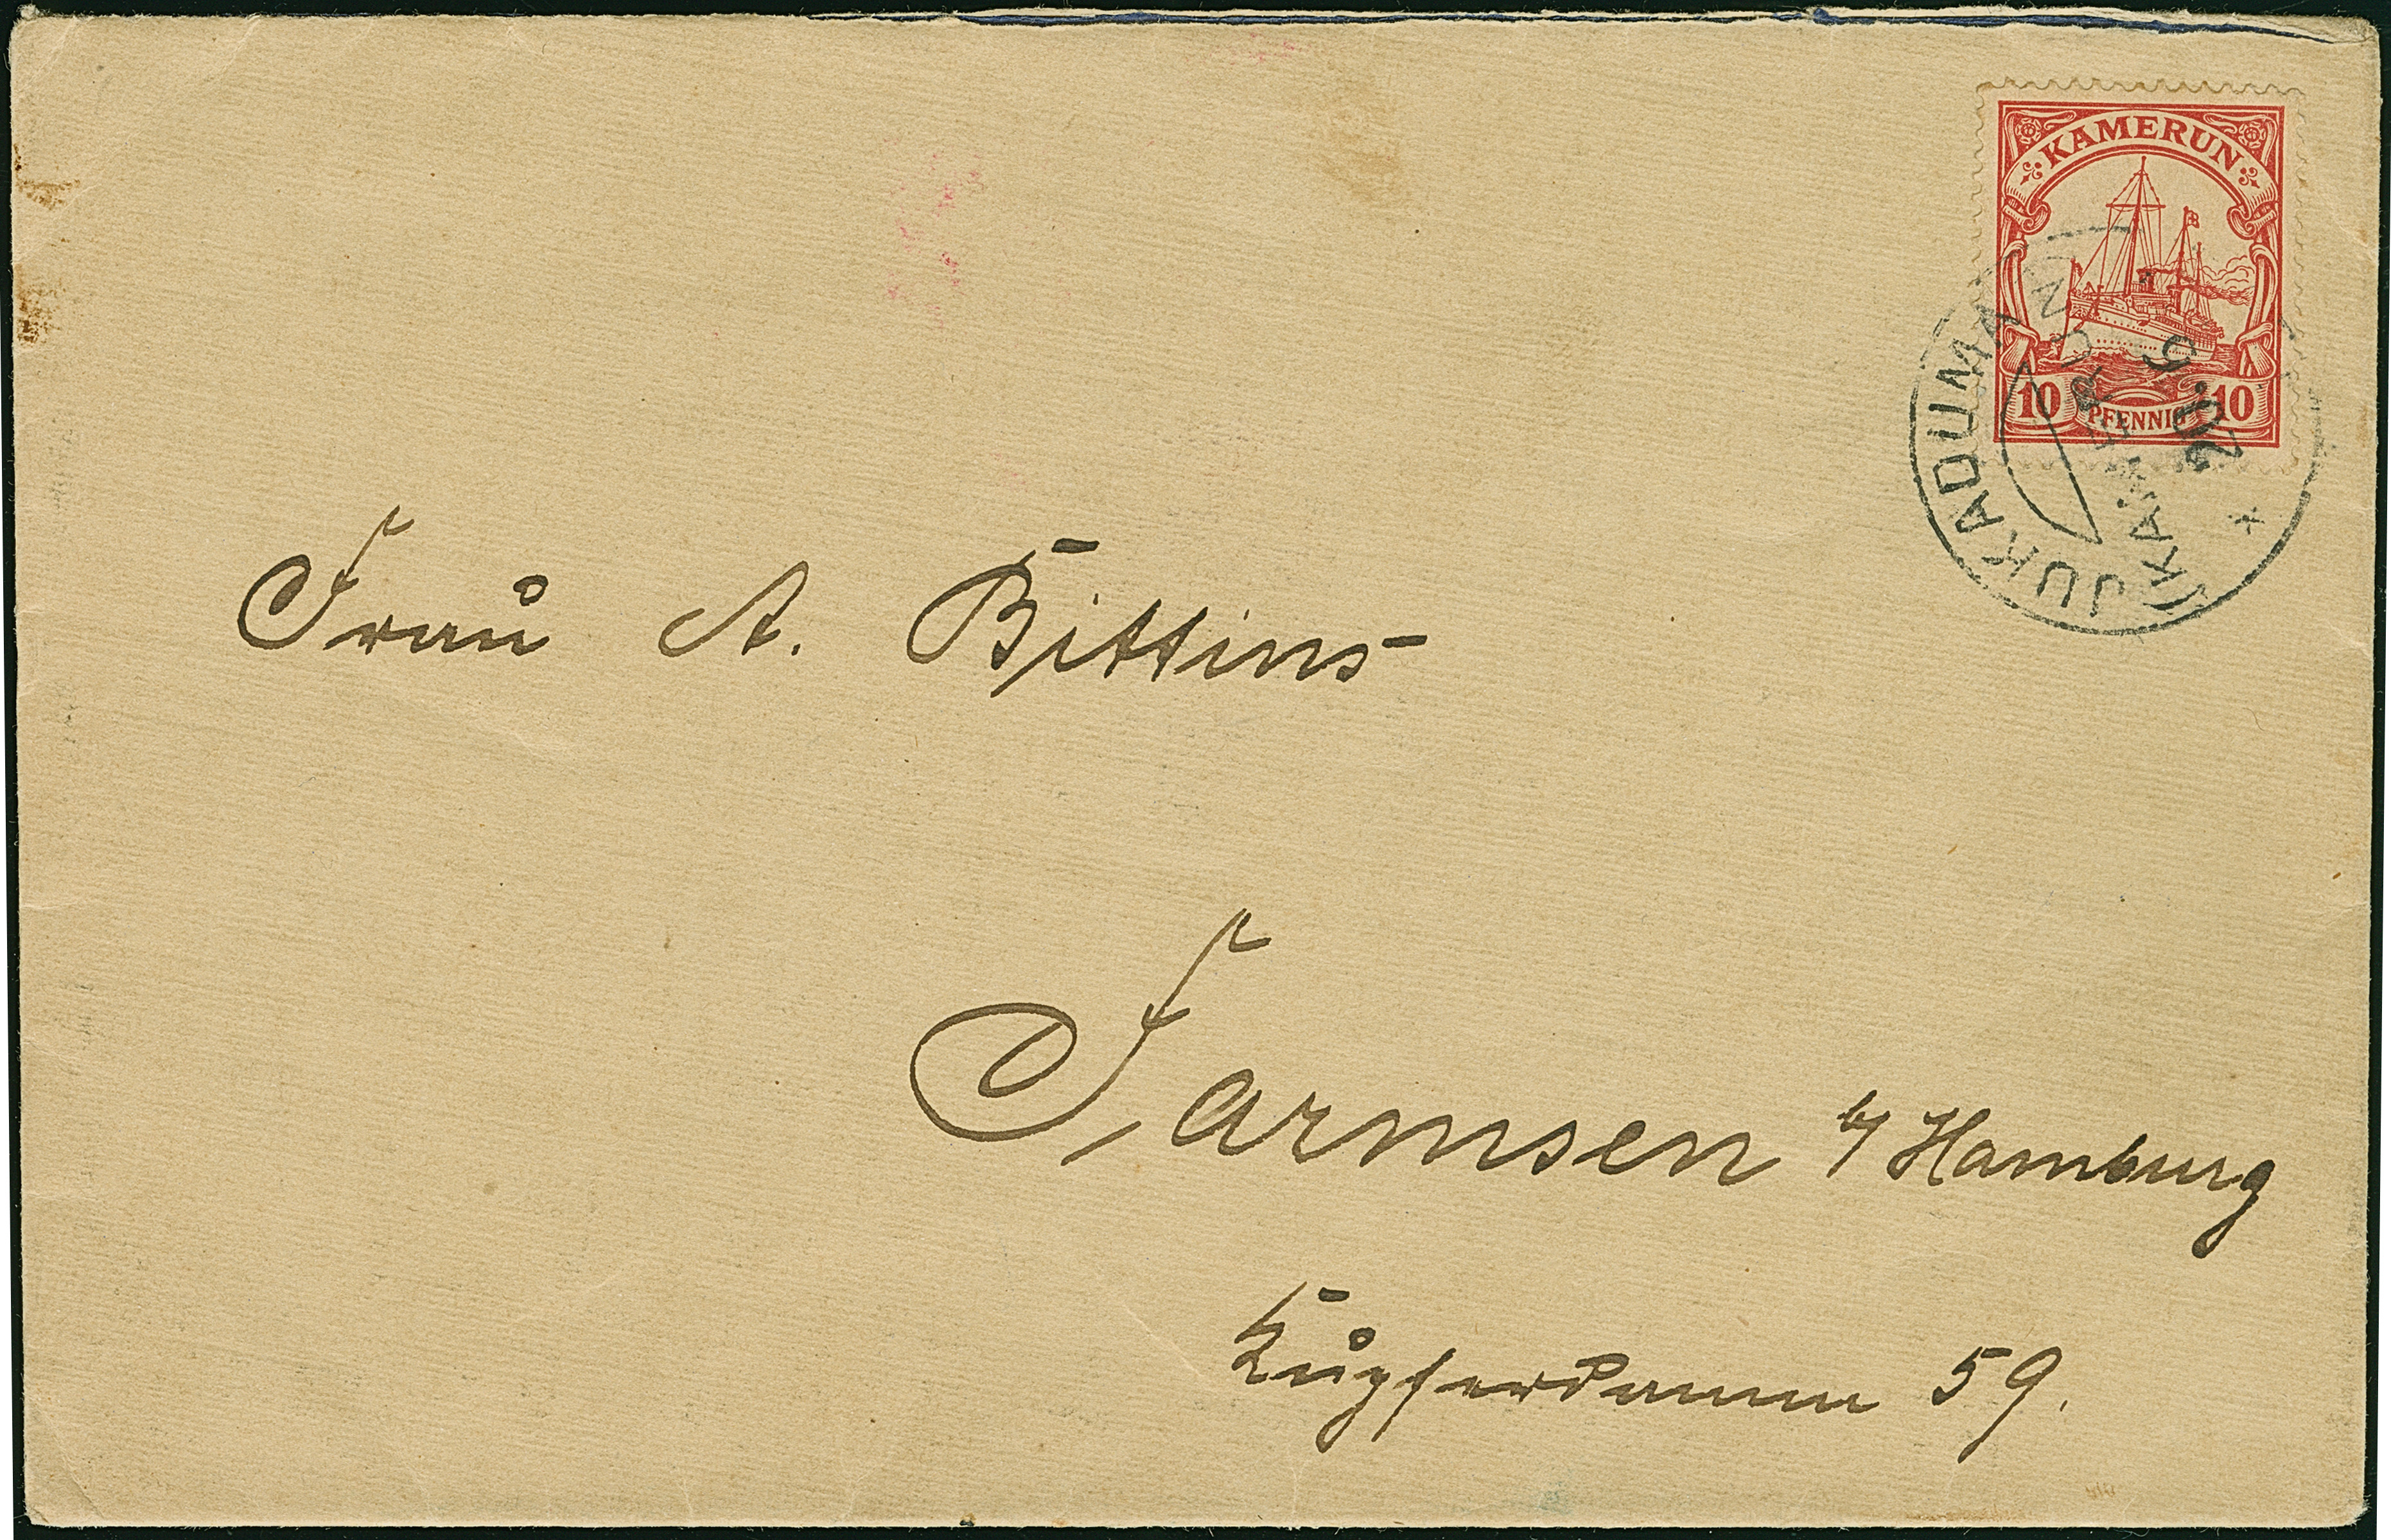 KAMERUN
10 PFENNIG 10
JUKADUMA
(KAMERUN)
20.6
*
Frau A. Bittins
Farmsen b/ Hamburg
Kupferdamm 59.